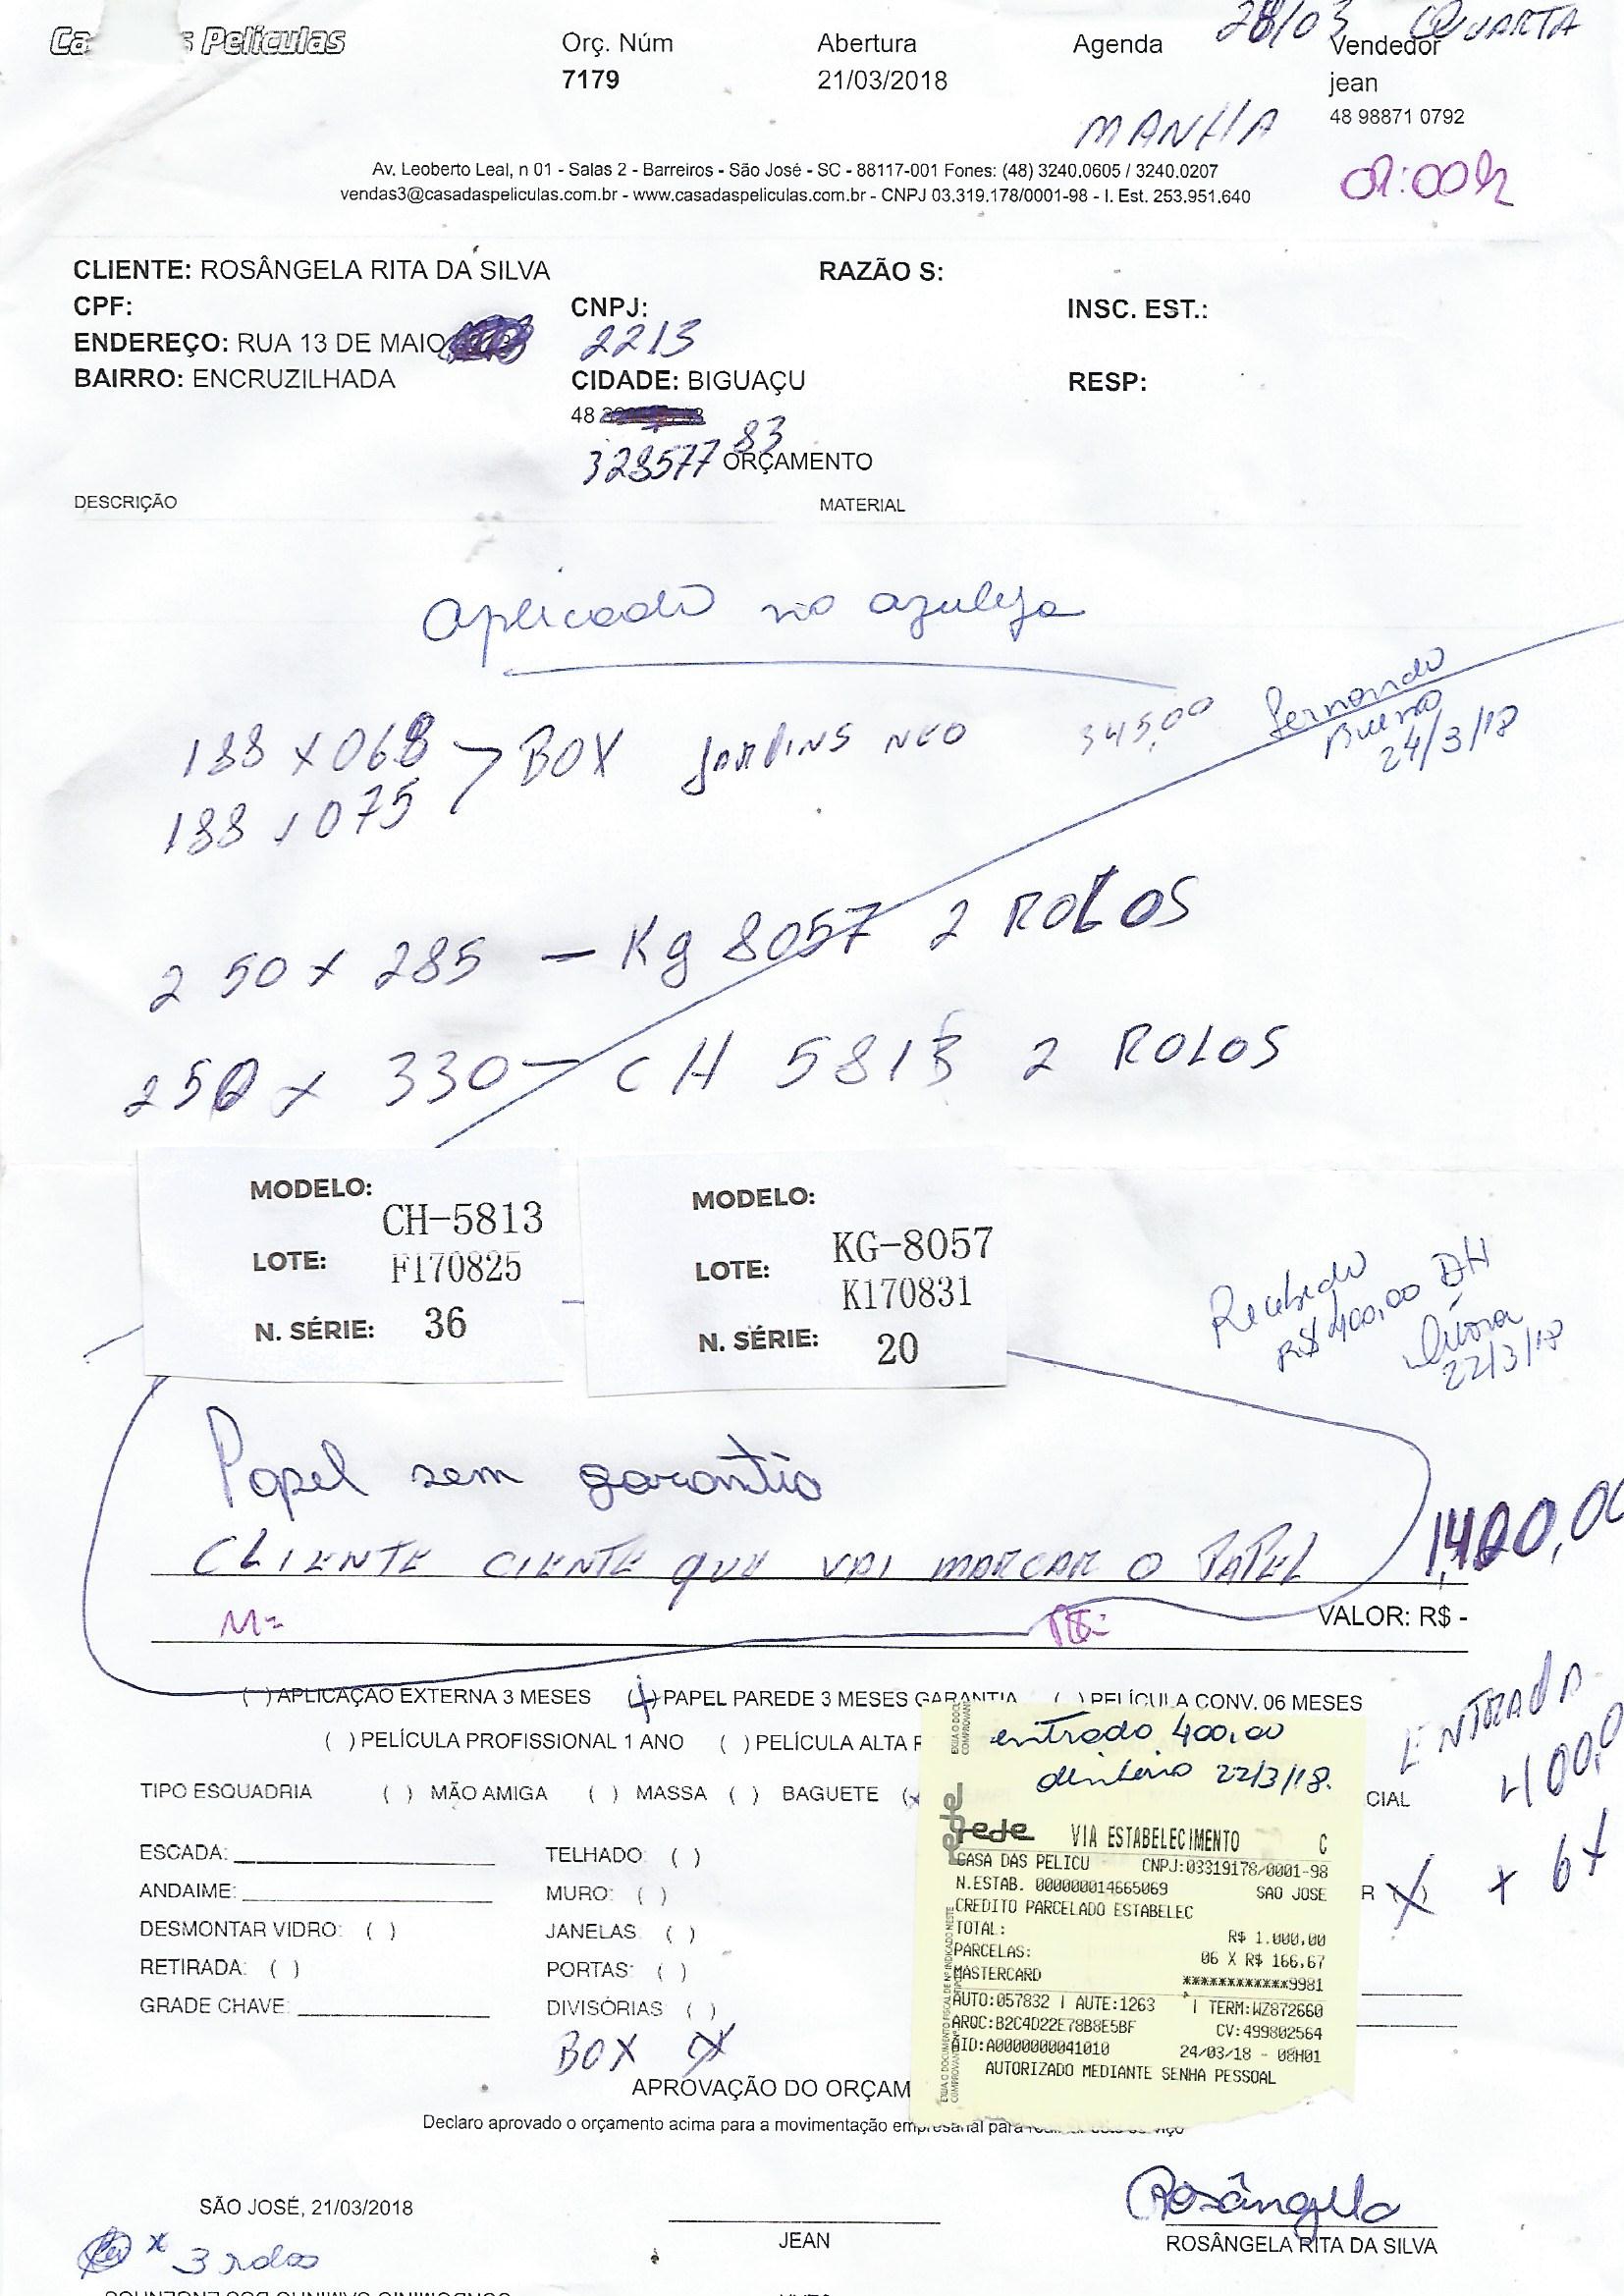 Ca s Películas
Orç. Núm
7179
Abertura
21/03/2018
Agenda
28/03 QUARTA
MANHA
Vendedor
jean
48 98871 0792
Av. Leoberto Leal, n 01 - Salas 2 - Barreiros - São José - SC - 88117-001 Fones: (48) 3240.0605 / 3240.0207
vendas3@casadaspeliculas.com.br - www.casadaspeliculas.com.br - CNPJ 03.319.178/0001-98 - I. Est. 253.951.640
CLIENTE: ROSÂNGELA RITA DA SILVA RAZÃO S:
CPF: CNPJ: INSC. EST.:
ENDEREÇO: RUA 13 DE MAIO 2213
BAIRRO: ENCRUZILHADA CIDADE: BIGUAÇU RESP:
48
32857783
ORÇAMENTO
DESCRIÇÃO MATERIAL
Aplicado no azulejo
188 x 068 > BOX JARDINS NEO 345,00
188 x 075
Fernando
24/3/18
250 x 285 - Kg 8057 2 ROLOS
250 x 330 - CH 5813 2 ROLOS
MODELO: CH-5813
LOTE: F170825
N. SÉRIE: 36
MODELO: KG-8057
LOTE: K170831
N. SÉRIE: 20
Recebido
R$ 400,00 DH
22/3/18
Papel sem garantia
CLIENTE CIENTE QUE VAI MARCAR O PAPEL
1,400,00
M=
VALOR: R$ -
( ) APLICAÇÃO EXTERNA 3 MESES (X) PAPEL PAREDE 3 MESES GARANTIA ( ) PELÍCULA CONV. 06 MESES
( ) PELÍCULA PROFISSIONAL 1 ANO ( ) PELÍCULA ALTA
ENTRADA
400,0
+ 6x
TIPO ESQUADRIA ( ) MÃO AMIGA ( ) MASSA ( ) BAGUETE (x CIAL
ESCADA: TELHADO: ( )
ANDAIME: MURO: ( ) R X
DESMONTAR VIDRO: ( ) JANELAS ( )
RETIRADA: ( ) PORTAS: ( )
GRADE CHAVE: DIVISÓRIAS ( )
BOX X
entrada 400,00
dinheiro 22/3/18.
rede VIA ESTABELECIMENTO C
CASA DAS PELICU CNPJ:03319178/0001-98
N.ESTAB. 000000014665069 SAO JOSE
CREDITO PARCELADO ESTABELEC
TOTAL: R$ 1.000,00
PARCELAS: 06 X R$ 166,67
MASTERCARD ************9981
AUTO:057832 | AUTE:1263 | TERM:WZ872660
ARQC:B2C4D22E78B8E5BF CV:499802564
AID:A0000000041010 24/03/18 - 08H01
AUTORIZADO MEDIANTE SENHA PESSOAL
APROVAÇÃO DO ORÇAM
Declaro aprovado o orçamento acima para a movimentação empresarial para
SÃO JOSÉ, 21/03/2018
Rosângela
JEAN
ROSÂNGELA RITA DA SILVA
x 3 rolos